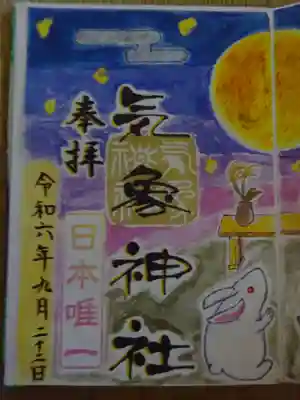 奉拝
気象神社
気象神社
日本唯一
令和六年九月二十二日